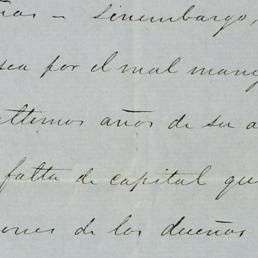 ñas - Sinembargo,
sea por el mal mane
ultimos años de su a
falta de capital que
ones de los dueños